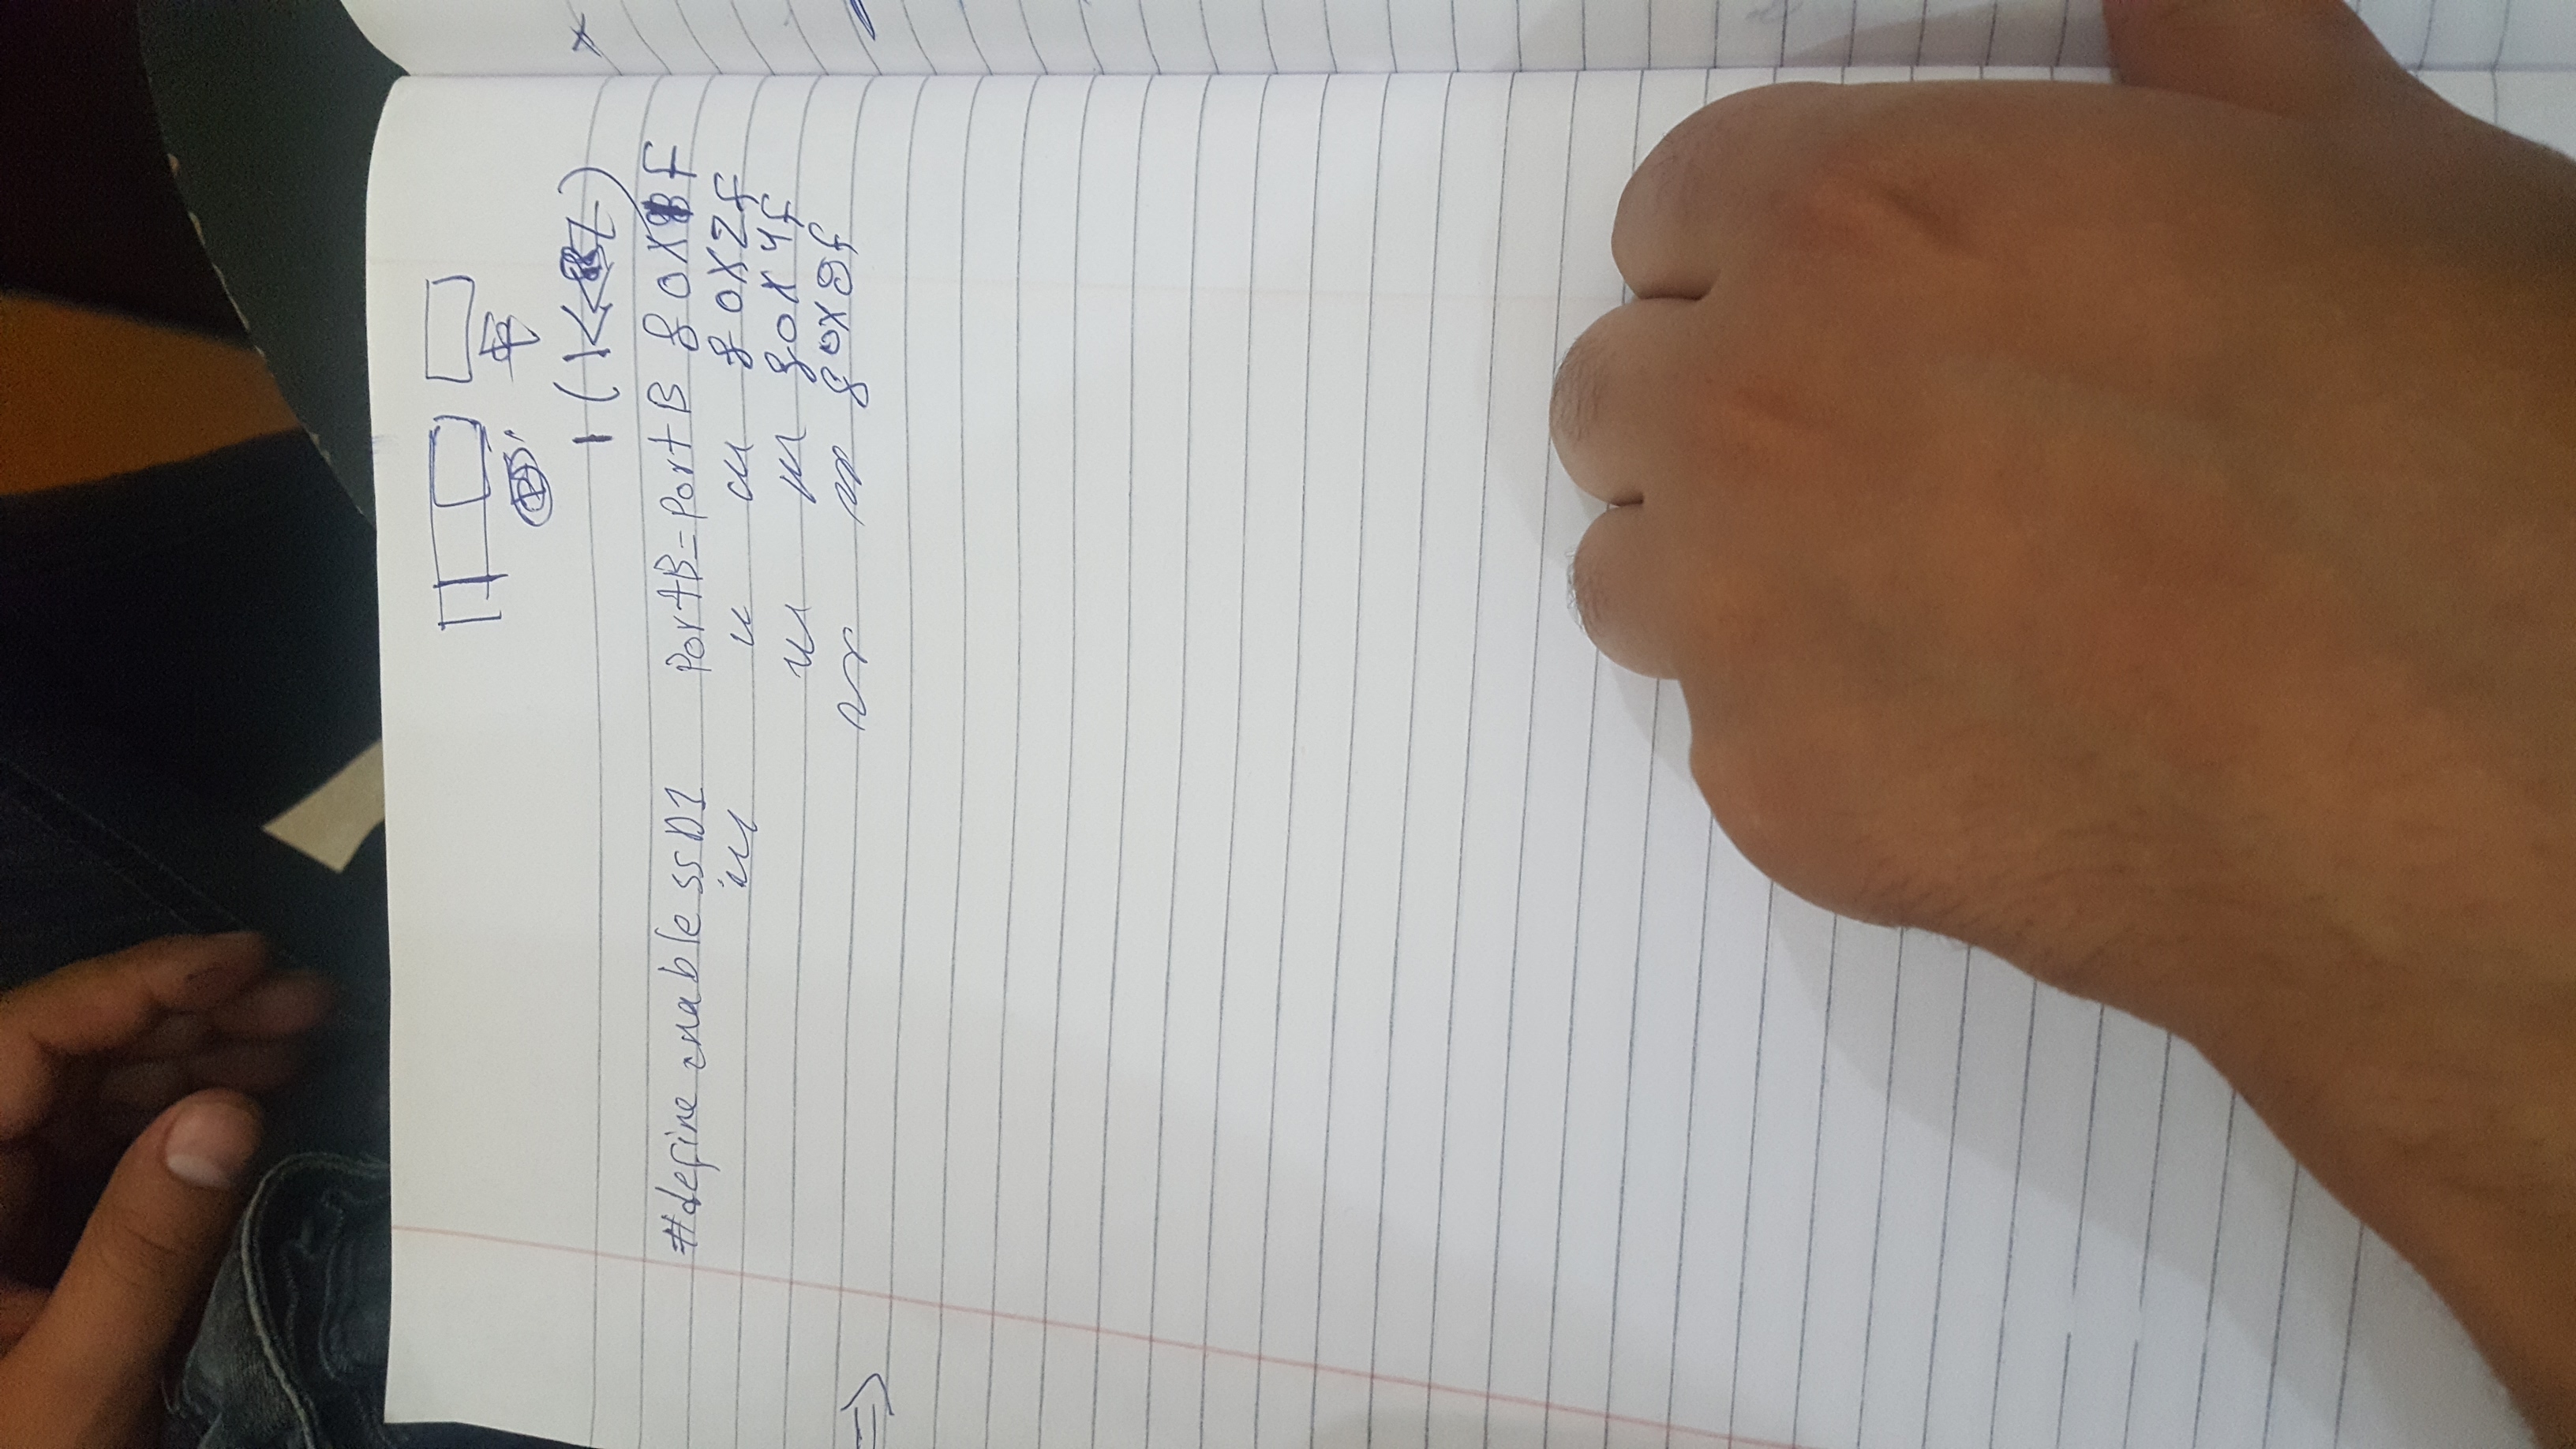 1 (1<<
#define enable SSD1 PortB = port B & 0X1F
" " " & 0X2f
" " & 0X4f
" " & 0X8f